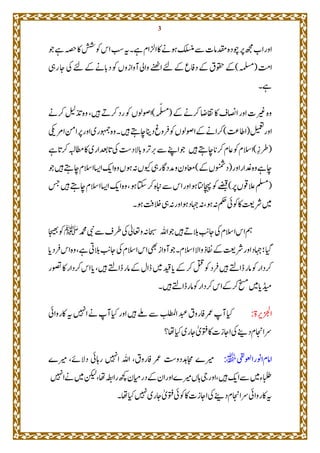 3
اور اب پر کچھ موجود مقدمات سے منسلک ہونے کا الزام ہے۔ یہ سب اس کوشش کا حصہ ہے جو
امت (مسلمہ) کے حقوق کے دفاع کے لئے اٹھنے والی آوازوں کو دبانے کے لئے کی جا رہی
ہے۔
وہ غیرت اور انصاف کا تقاضا کرنے کے (مسلّمہ) اصولوں کو رد کرتے ہیں، وہ تذلیل کرنے
اور تعمیل (اطاعت) کرانے کے اصولوں کو فروغ دینا چاہتے ہیں۔ وہ جمہوری اور پر امن امریکی
(طرزِ) اسلام کو عام کرانا چاہتے ہیں جو اپنے سے برتر و بالادست کی تابعداری کا مطالبہ کرتا ہے
چاہے وہ غدار اور (دشمنوں کے) معاون و مددگار ہی کیوں نہ ہوں، وہ ایک ایسا اسلام چاہتے ہیں جو
(مسلم علاقوں پر) قبضے کو اچھا جانتا ہے اور اس سے نباہ کر سکتا ہو، وہ ایک ایسا اسلام چاہتے ہیں جس
میں شریعت کا کوئی حکم نہ ہو، نہ جہاد ہو اور نہ ہی خلافت ہو۔
ہم اس اسلام کی جانب بلاتے ہیں جو اللہ سبحانہ وتعالیٰ کی طرف سے نبی محمد ﷺ کو بھیجا
گیا: جہاد اور شریعت کے نفاذ والا اسلام، جو آواز بھی اس اسلام کی جانب بلاتی ہے، وہ اس فرد یا
کردار کو مار ڈالتے ہیں فرد کو قتل کر کے یا قید میں ڈال کے مار ڈالتے ہیں، یا، اس کا کردار اور تصور
میڈیا میں مسخ کر کے اس کردار کو مار ڈالتے ہیں۔
الجزیرۃ: کیا آپ عمر فاروق عبد المطلب سے ملے ہیں اور کیا آپ نے انہیں یہ کاروائی
سر انجام دینے کی اجازت کا فتویٰ جاری کیا تھا؟
امام انور العولقی ﷾: میرے مجاہد دوست عمر فاروق، اللہ انہیں رہائی دلائے، میرے
طلباء میں سے ایک ہیں، اور جی ہاں میرے اور ان کے درمیان کچھ رابطہ تھا، لیکن میں نے انہیں
یہ کاروائی سر انجام دینے کی اجازت کا کوئی فتویٰ جاری نہیں کیا تھا۔